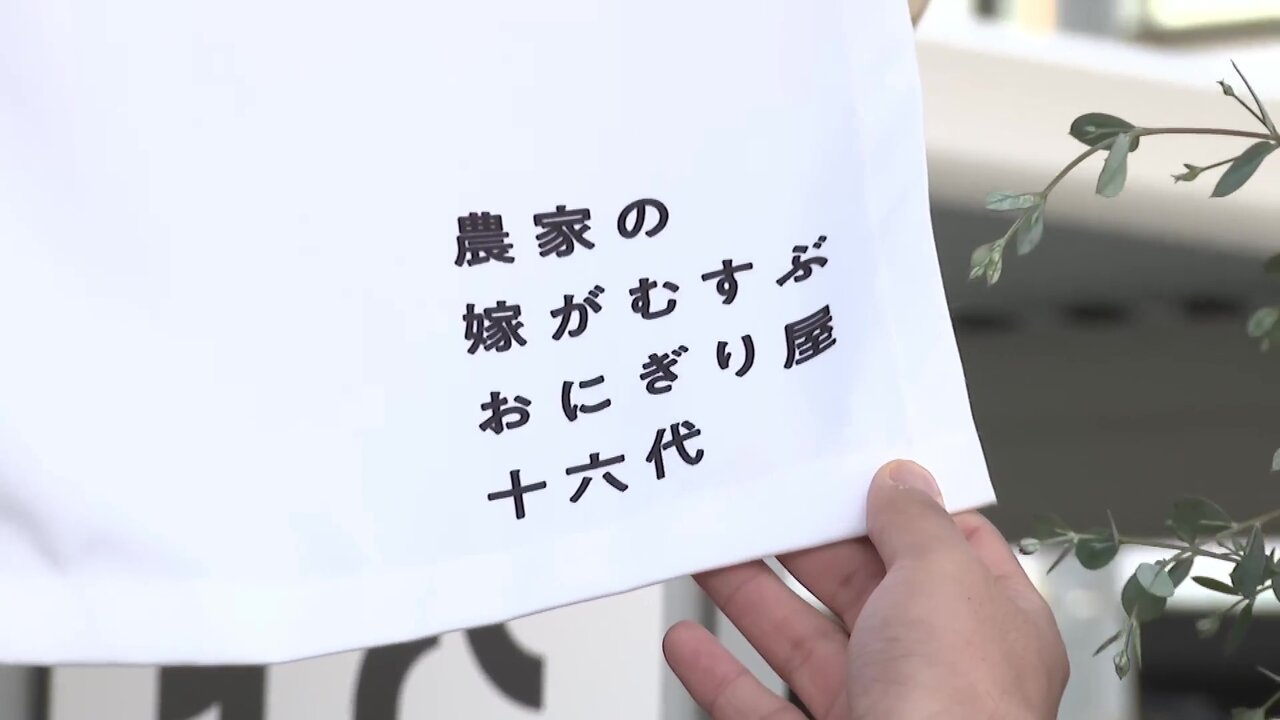 農家の
嫁がむすぶ
おにぎり屋
十六代